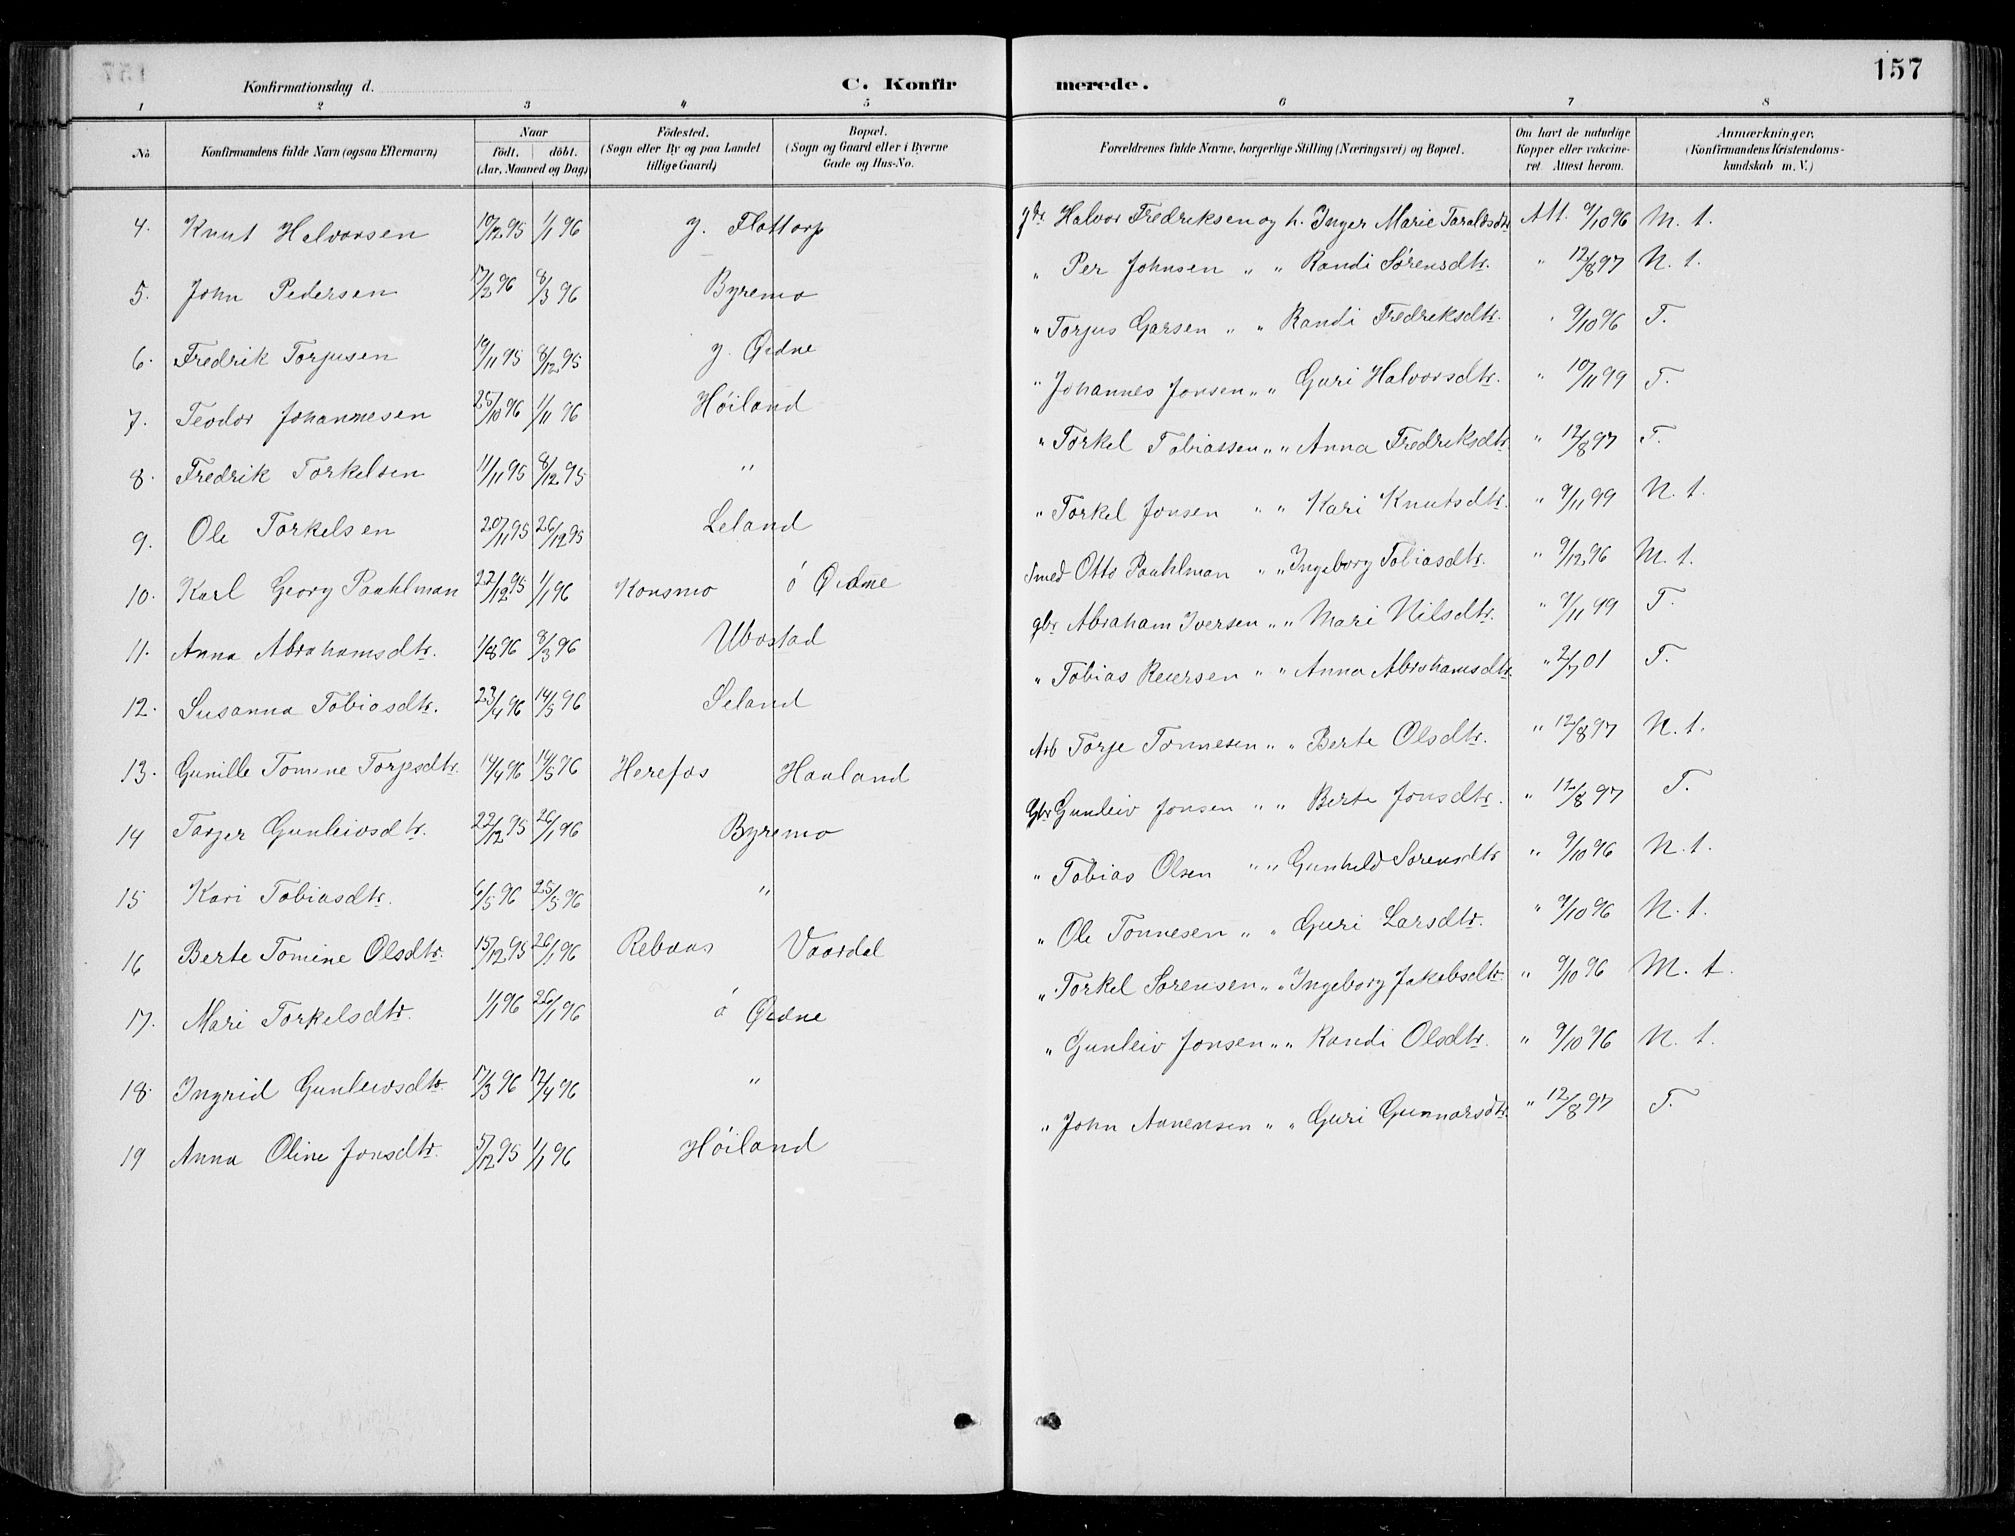 157
Konfirmationsdag d.
C. Konfirmerede.
1 2 3 4 5 6 7 8
No
Konfirmandens fulde Navn (ogsaa Efternavn)
Naar
født. døbt.
(Aar, Maaned og Dag)
Fødested.
(Sogn eller By og paa Landet
tillige Gaard)
Bopæl.
(Sogn og Gaard eller i Byerne
Gade og Hus-No.
Forældrenes fulde Navne, borgerlige Stilling (Næringsvei) og Bopæl.
Om havt de naturlige
Kopper eller vakcine-
ret. Attest herom.
Anmærkninger.
(Konfirmandens Kristendoms-
kundskab m. V.)
4. Knut Halvorsen 10/12 95 1/1 96 y. Flottorp gbr Halvor Fredriksen og h. Inger Marie Taraldsdtr Att. 9/10 96 M. t.
5. John Pedersen 17/2 96 8/3 96 Byremo " Per Johnsen " " Randi Sørensdtr. " 12/8 97 N. t.
6. Fredrik Torjusen 19/11 95 8/12 95 y. Øidne " Torjus Garsen " " Randi Fredriksdtr. " 9/10 96 T.
7. Teodor Johannesen 25/10 96 1/11 96 Høiland " Johannes Jonsen " " Guri Halvorsdtr. " 10/11 99 T.
8. Fredrik Torkelsen 11/11 95 8/12 95 " " Torkel Tobiassen " " Anna Fredriksdtr " 12/8 97 T.
9. Ole Torkelsen 20/11 95 26/12 95 Leland " Torkel Jonsen " " Kari Knutsdtr. " 9/11 99 N. t.
10. Karl Georg Paahlman 22/12 95 1/1 96 Konsmo ó Øidne Smed Otto Paahlman " " Ingeborg Tobiasdtr. " 9/12 96 M. t.
11. Anna Abrahamsdtr. 1/8 96 8/3 96 Ubostad gbr Abraham Iversen " " Mari Nilsdtr. " 9/11 99 T.
12. Susanna Tobiasdtr. 23/4 96 14/5 96 Seland " Tobias Reiersen " " Anna Abrahamsdtr. " 2/7 01 T.
13. Gunille Tomine Torjesdtr. 14/4 96 14/5 96 Herefos Haaland Arb Torje Tonnesen " " Berte Olsdtr. " 12/8 97 N. t.
14 Tarjer Gunleivsdtr. 22/12 95 26/1 96 Byremo Gbr Gunleiv Jonsen " " Berte Jonsdtr. " 12/8 97 T.
15 Kari Tobiasdtr. 6/5 96 25/5 96 " " Tobias Olsen " " Gunhild Sørensdtr " 9/10 96 N. t.
16 Berte Tomine Olsdtr. 15/12 95 26/1 96 Rebaas Vaardal " Ole Tonnesen " " Guri Larsdtr. " 9/10 96 N. t.
17. Mari Torkelsdtr. 1/1 96 26/1 96 ó Øidne " Torkel Sorensen " " Ingeborg Jakobsdtr. " 9/10 96 M. t.
18. Ingrid Gunleivsdtr. 17/3 96 12/4 96 " " Gunleiv Jonsen " " Randi Olsdtr. " 9/10 96 N. t.
19 Anna Oline Jonsdtr. 5/12 95 1/1 96 Høiland " John Aanensen " " Guri Gunnarsdtr. " 12/8 97 T.